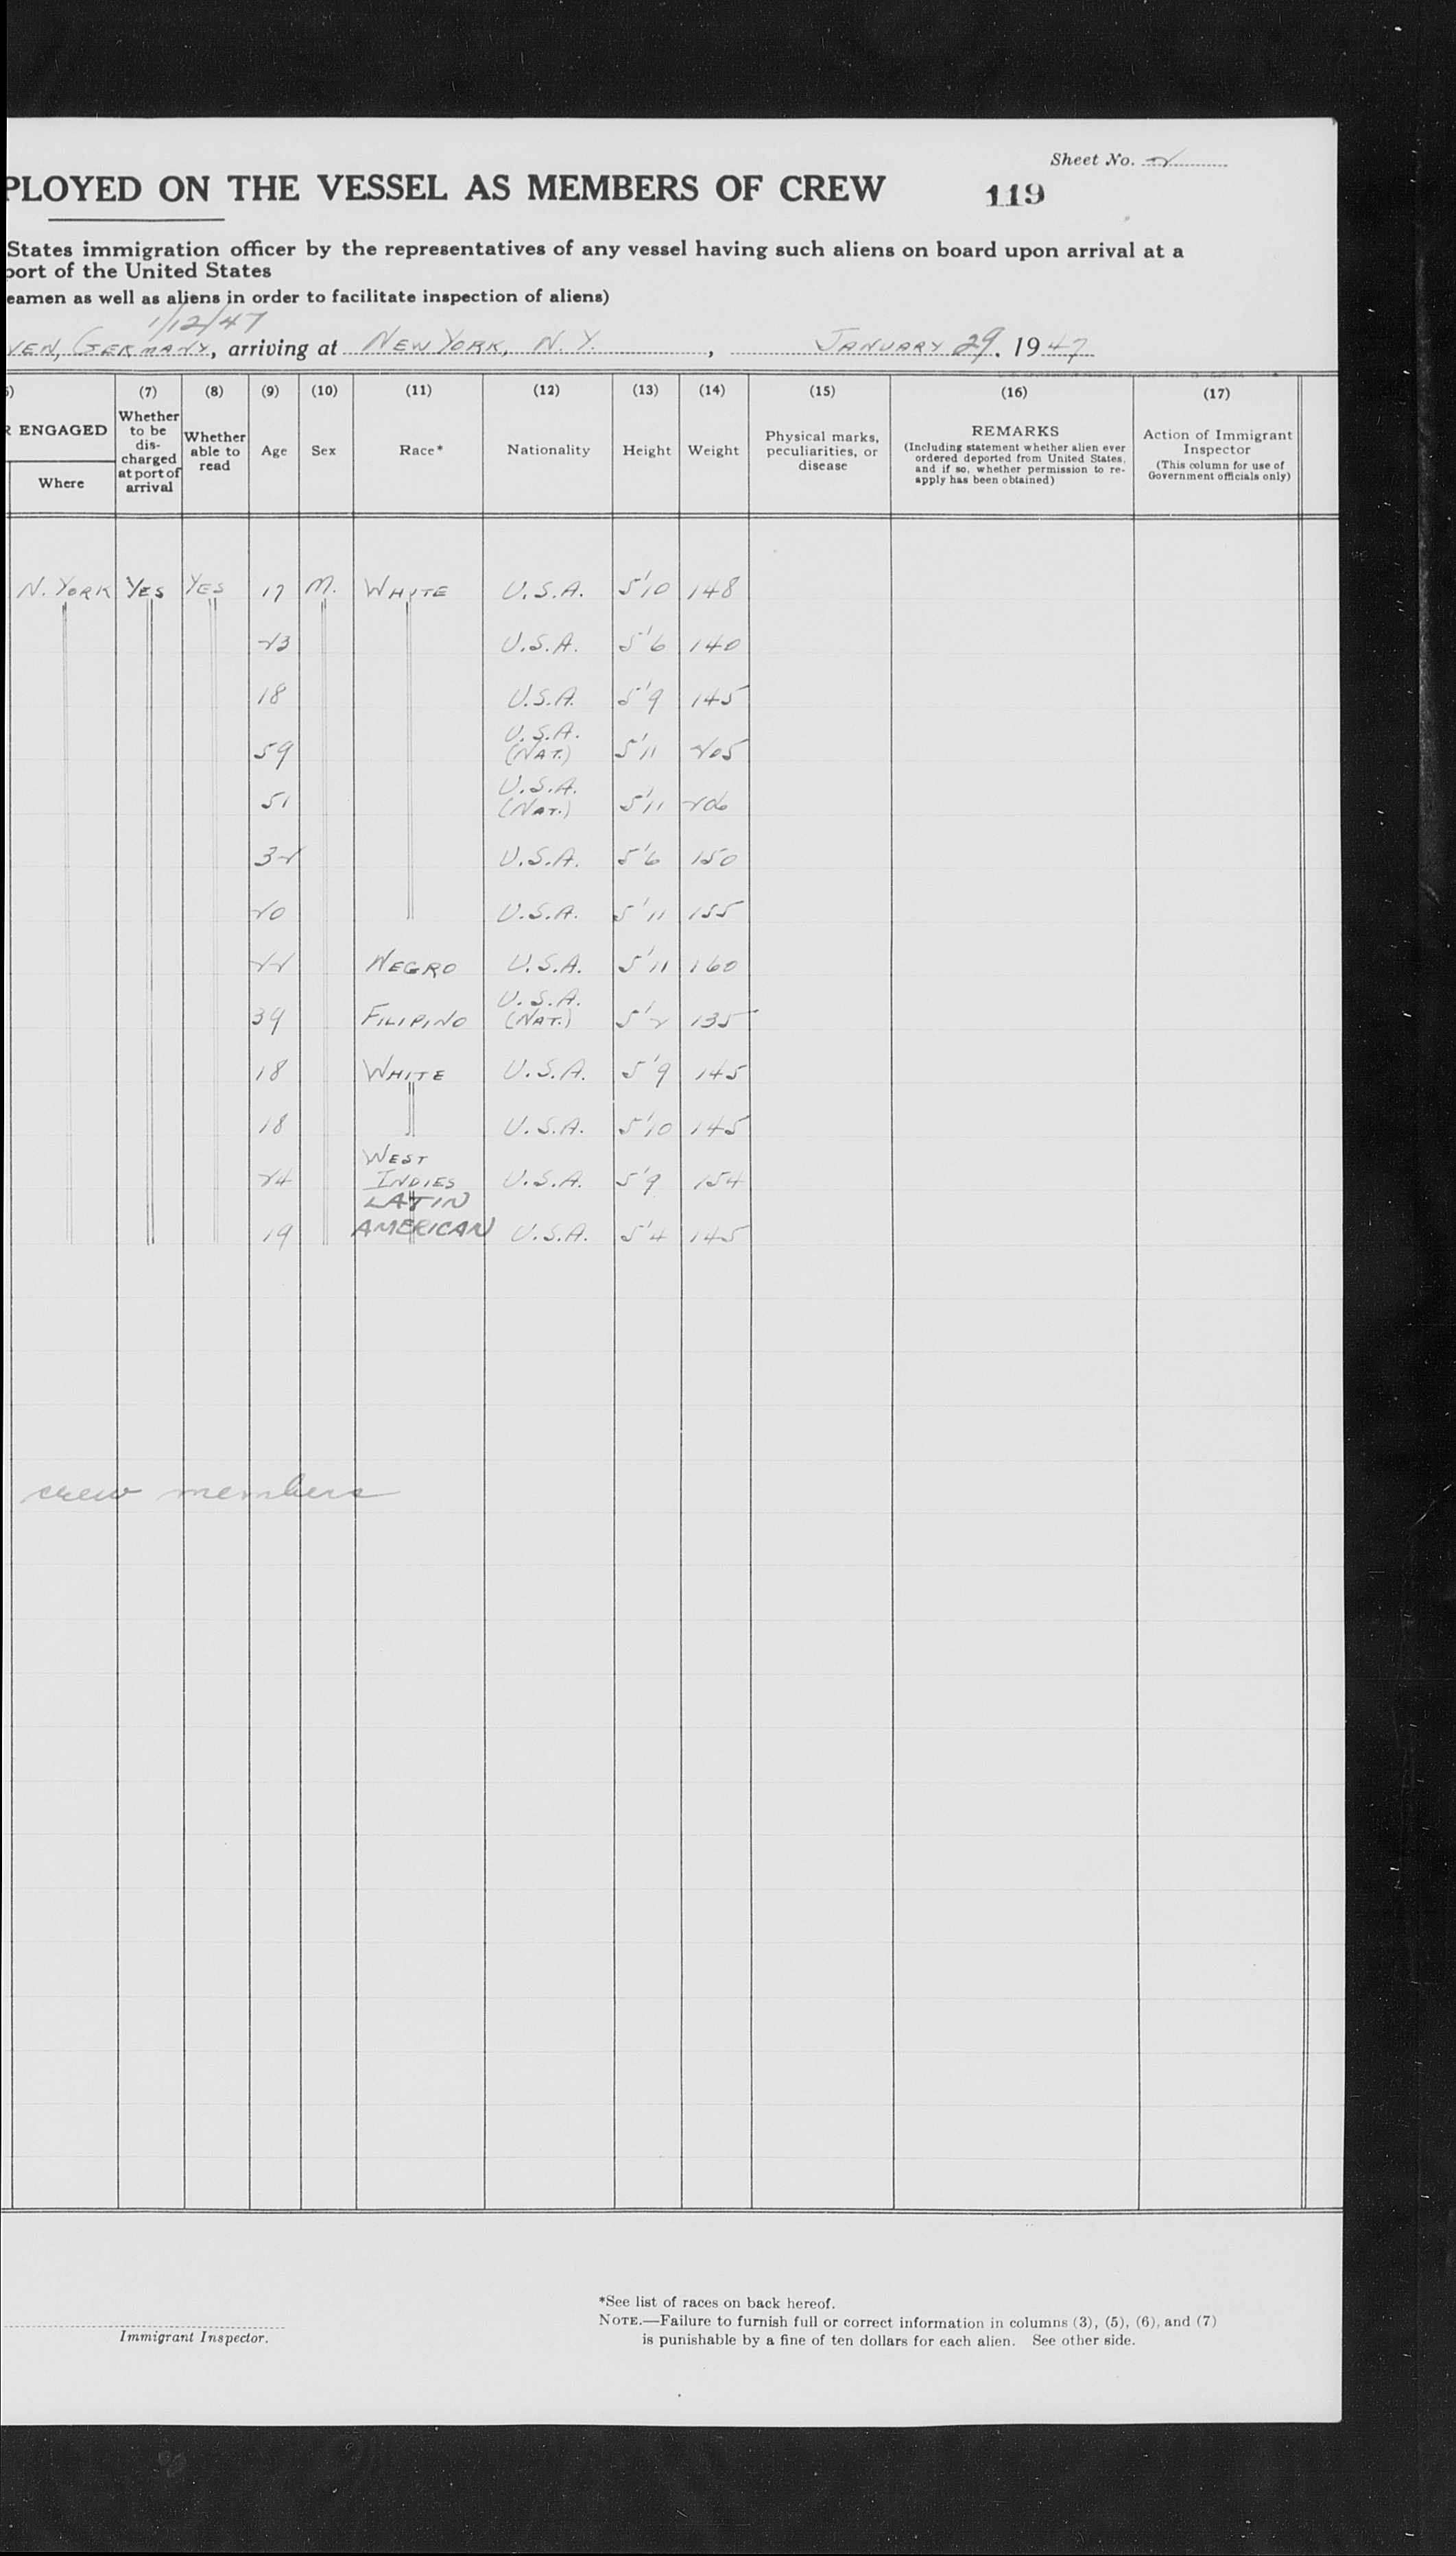 Sheet No. 2
PLOYED ON THE VESSEL AS MEMBERS OF CREW
119
States immigration officer by the representatives of any vessel having such aliens on board upon arrival at a
port of the United States
eamen as well as aliens in order to facilitate inspection of aliens)
1/12/47
VEN, GERMANY, arriving at NEW YORK, N.Y., JANUARY 29, 1947
(7) (8) (9) (10) (11) (12) (13) (14) (15) (16) (17)
R ENGAGED
Where
Whether to be dis-charged at port of arrival
Whether able to read
Age
Sex
Race*
Nationality
Height
Weight
Physical marks, peculiarities, or disease
REMARKS
(Including statement whether alien ever ordered deported from United States, and if so, whether permission to re-apply has been obtained)
Action of Immigrant Inspector
(This column for use of Government officials only)
N. YORK YES YES 17 M. WHITE U.S.A. 5'10 148
23 U.S.A. 5'6 140
18 U.S.A. 5'9 145
59 U.S.A. (NAT.) 5'11 205
51 U.S.A. (NAT.) 5'11 206
32 U.S.A. 5'6 150
20 U.S.A. 5'11 155
22 NEGRO U.S.A. 5'11 160
39 FILIPINO U.S.A. (NAT.) 5'2 135
18 WHITE U.S.A. 5'9 145
18 U.S.A. 5'10 145
24 WEST INDIES U.S.A. 5'9 154
19 LATIN AMERICAN U.S.A. 5'4 145
crew members
Immigrant Inspector.
*See list of races on back hereof.
NOTE.—Failure to furnish full or correct information in columns (3), (5), (6), and (7)
is punishable by a fine of ten dollars for each alien. See other side.